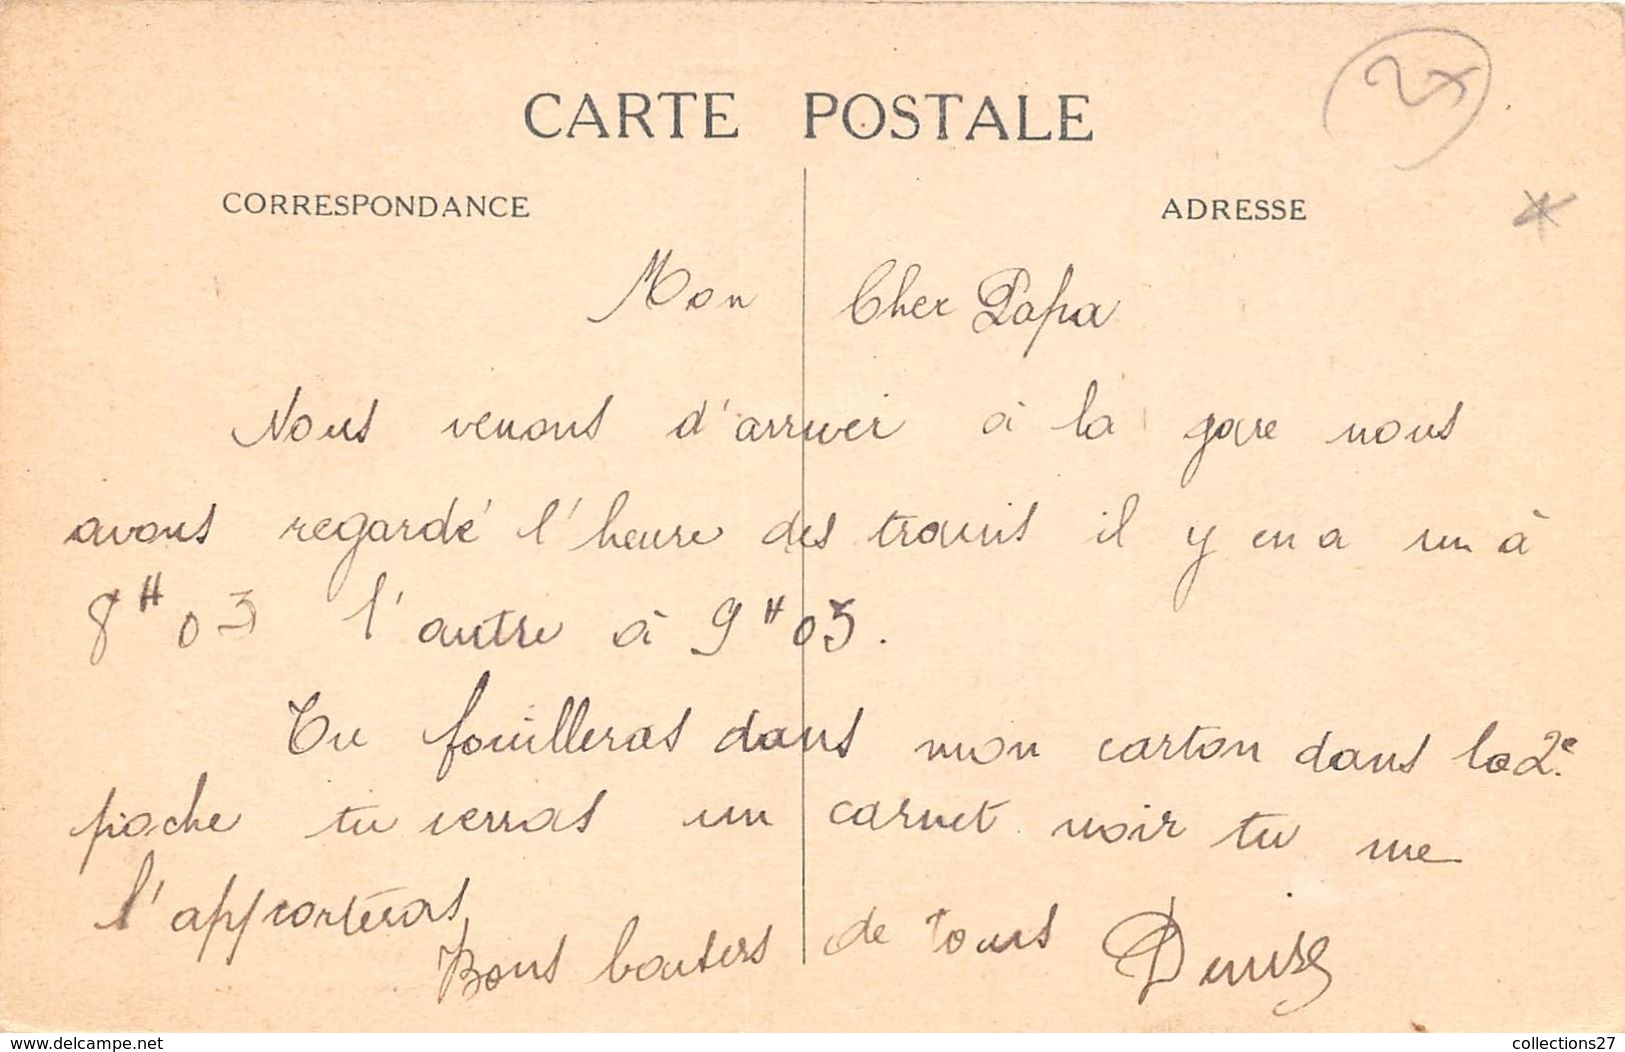 27
CARTE POSTALE
CORRESPONDANCE
ADRESSE
Mon Cher Papa
Nous venons d'arriver à la gare nous
avons regardé l'heure des trains il y en a un à
8H 03 l'autre à 9H 05.
Tu fouilleras dans mon carton dans la 2e
poche tu verras un carnet noir tu me
l'apporteras
Bons baisers de tous Denise
www.delcampe.net
collections27